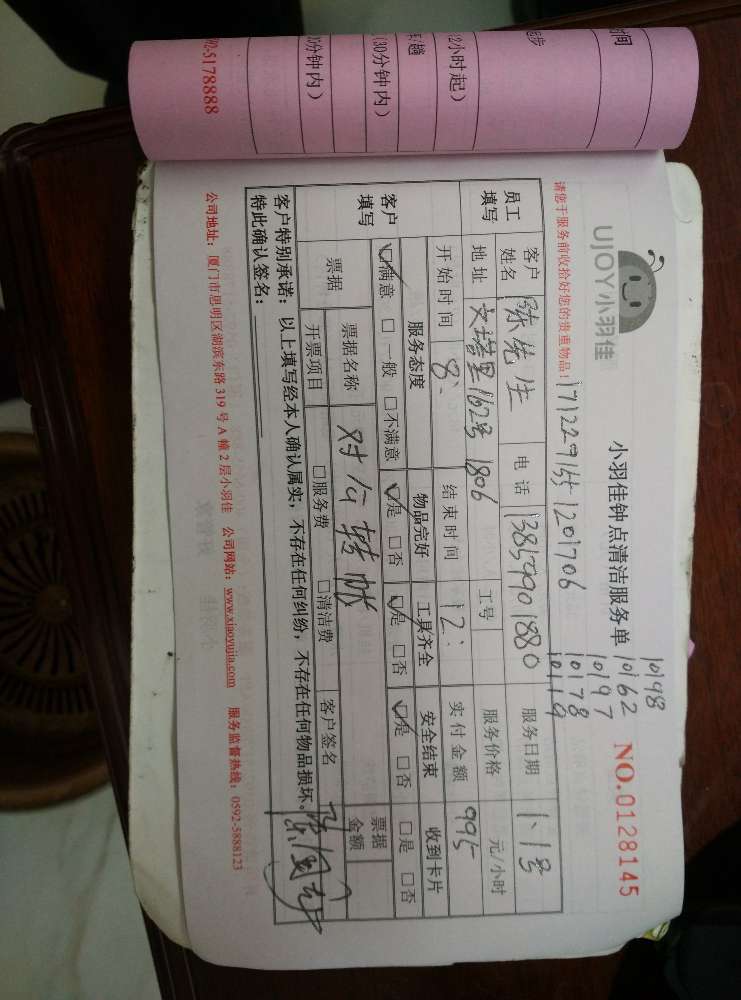 时间
起步
2小时起）
(30分钟内）
分钟内）
92-5178888
UJOY小羽佳
小羽佳钟点清洁服务单
NO.0128145
10198
10162
10197
10178
10119
请您于服务前收拾好您的贵重物品！
1201706
员工填写 客户姓名 陈先生 电话 13859901880 服务日期 1、1号
地址 文塔里162号1806 工号 服务价格 元/小时
开始时间 8： 结束时间 12： 实付金额 995
客户填写 服务态度 物品完好 工具齐全 安全结束 收到卡片
☑满意 □一般 □不满意 ☑是 □否 ☑是 □否 ☑是 □否 □是 □否
票据 票据名称 对公转帐 票据金额
开票项目 □服务费 □清洁费 客户签名
客户特别承诺：以上填写经本人确认属实，不存在任何纠纷，不存在任何物品损坏。
特此确认签名：
公司地址：厦门市思明区湖滨东路 319 号 A 幢 2 层小羽佳 公司网站：www.xiaoyujia.com 服务监督热线：0592-5888123